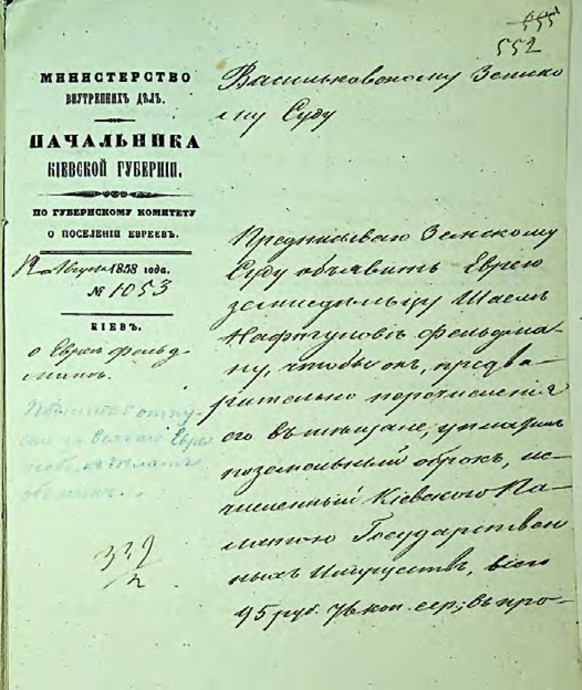 555
552
МИНИСТЕРСТВО
ВНУТРЕННИХЪ ДѢЛЪ.
НАЧАЛЬНИКА
КІЕВСКОЙ ГУБЕРНІИ.
ПО ГУБЕРНСКОМУ КОМИТЕТУ
О ПОСЕЛЕНІИ ЕВРЕЕВЪ.
Августа 1858 года.
№ 1053
КІЕВЪ.
о Евреѣ Фельд-
манѣ.
339
Васильковскому Земско
му Суду
Предписываю Земскому
Суду объявить Еврею
земледѣльцу
Фельдма
ну, чтобы онъ, предва
рительно перечисленія
его въ мѣщане, уплатилъ
поземельный оброкъ, ис
численный Кіевскою Па
латою Государствен
ныхъ Имуществъ, всего
95 руб. 76 коп. сер; въ про-